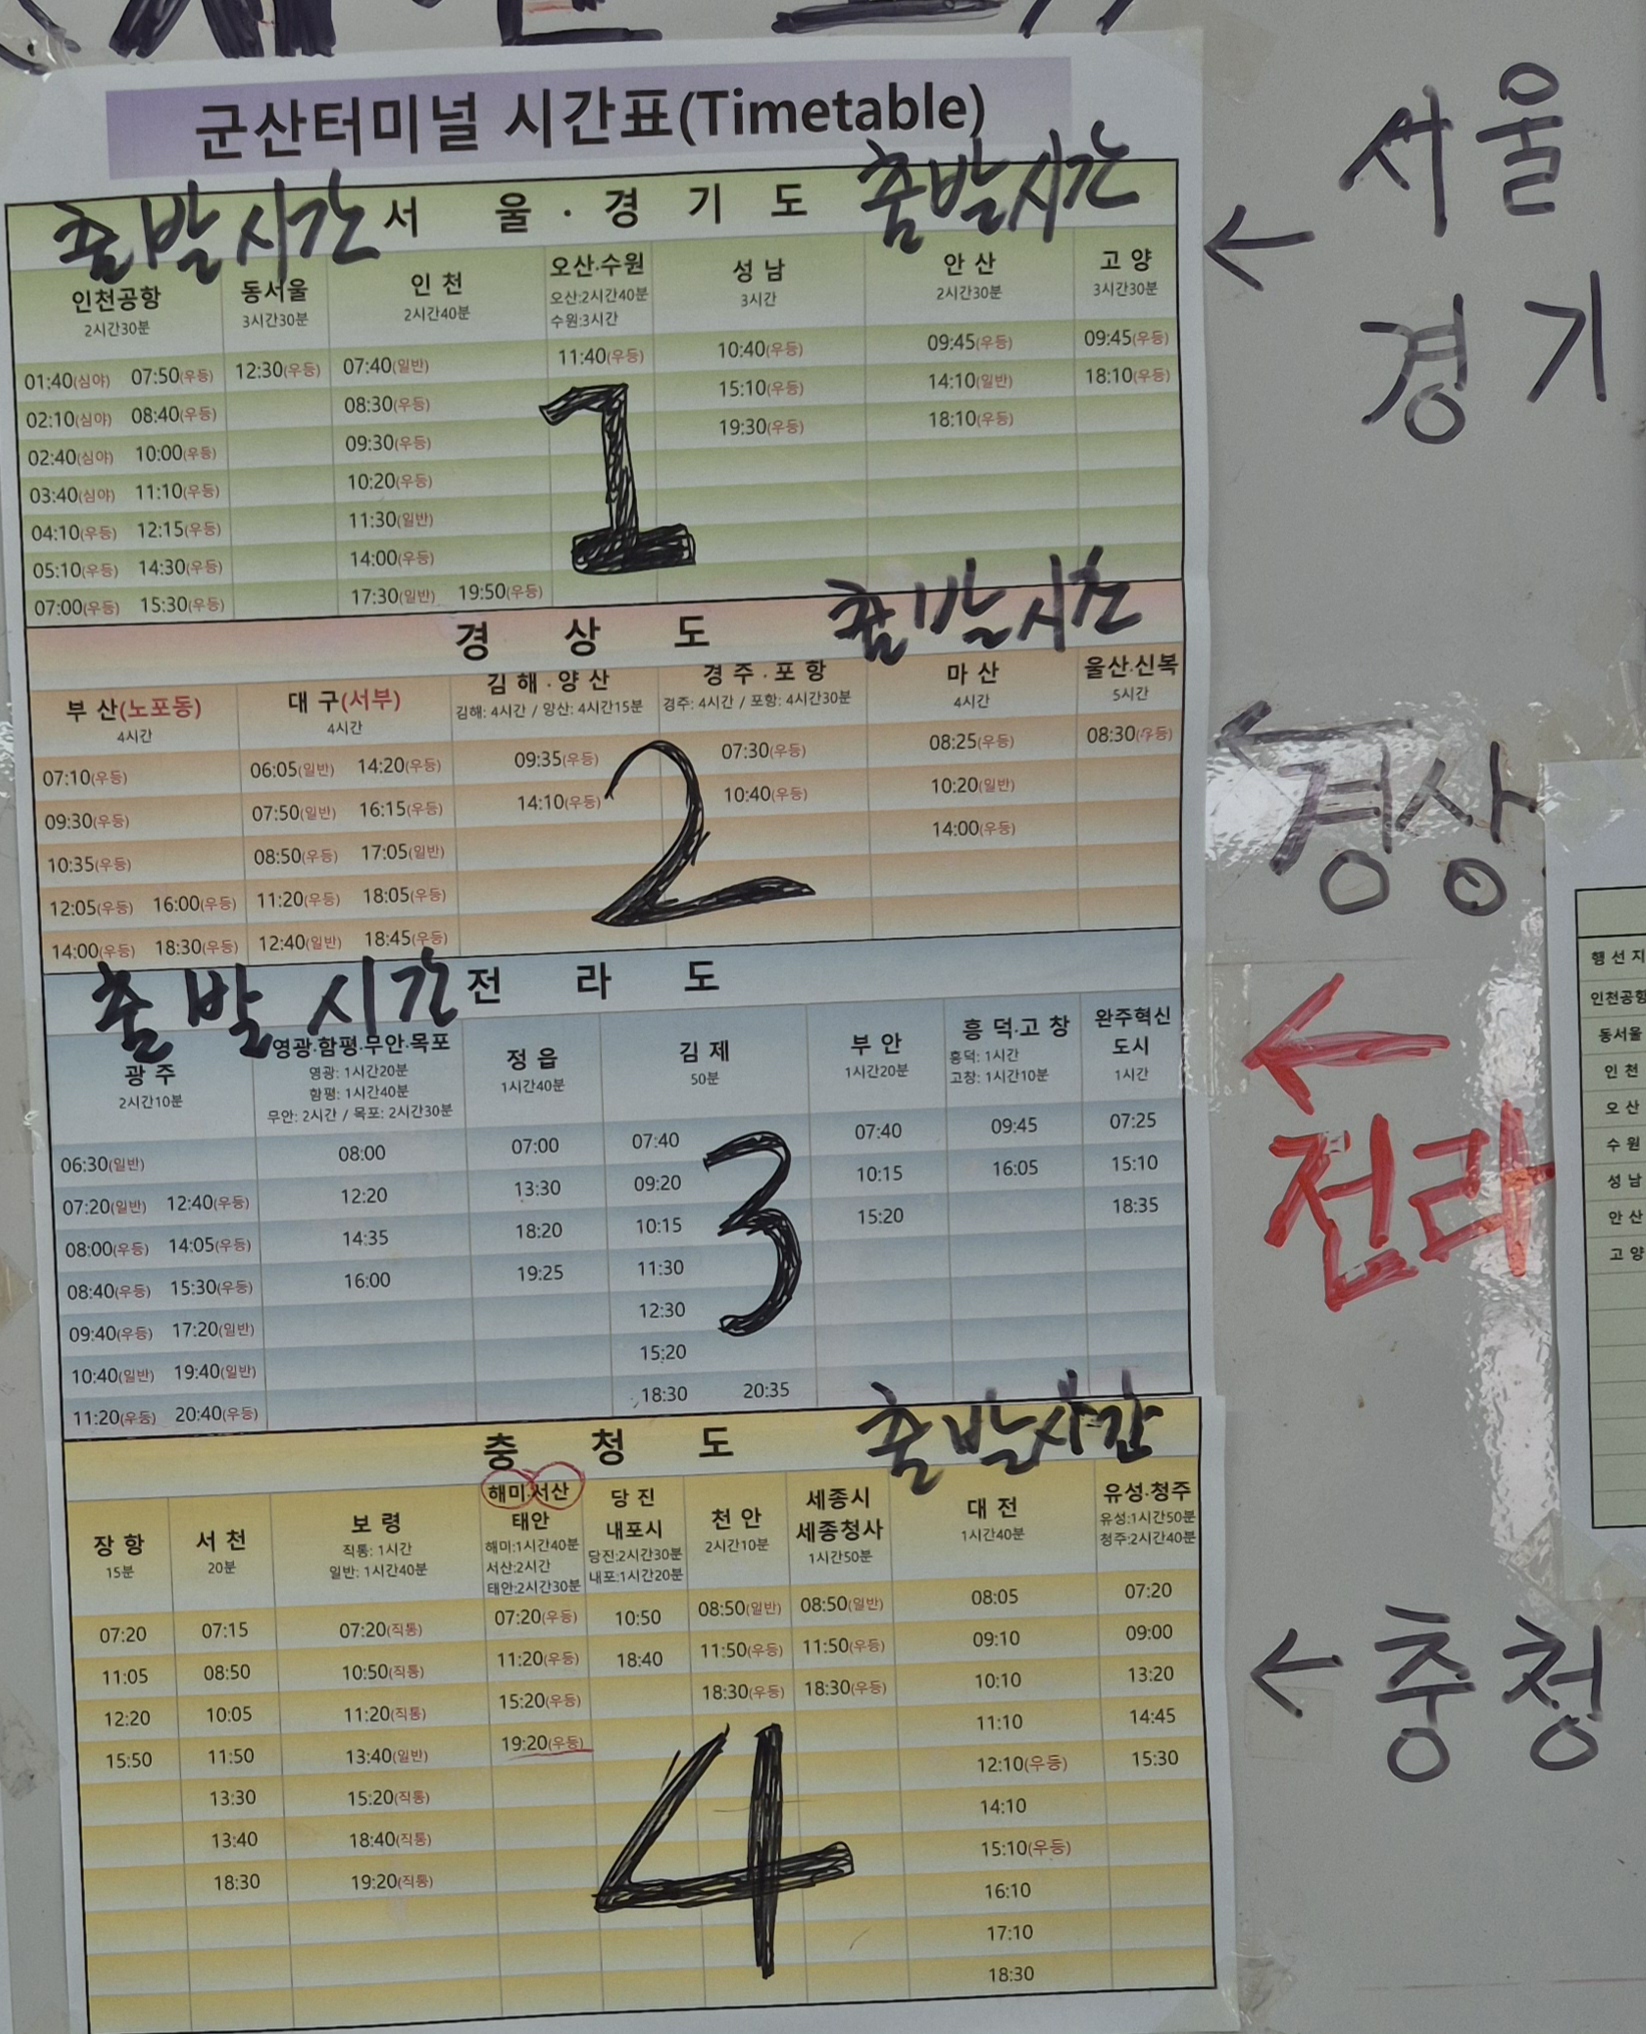 군산터미널 시간표(Timetable)
출발시간 서 울 · 경 기 도 출발시간
인천공항 동서울 인 천 오산·수원 성 남 안 산 고 양
2시간30분 3시간30분 2시간40분 오산:2시간40분 3시간 2시간30분 3시간30분
수원:3시간
01:40(심야) 07:50(우등) 12:30(우등) 07:40(일반) 11:40(우등) 10:40(우등) 09:45(우등) 09:45(우등)
02:10(심야) 08:40(우등) 08:30(우등) 15:10(우등) 14:10(일반) 18:10(우등)
02:40(심야) 10:00(우등) 09:30(우등) 19:30(우등) 18:10(우등)
03:40(심야) 11:10(우등) 10:20(우등)
04:10(우등) 12:15(우등) 11:30(일반)
05:10(우등) 14:30(우등) 14:00(우등)
07:00(우등) 15:30(우등) 17:30(일반) 19:50(우등)
1
← 서울
경기
경 상 도 출발시간
부 산(노포동) 대 구(서부) 김 해 · 양 산 경 주 · 포 항 마 산 울산·신복
4시간 4시간 김해: 4시간 / 양산: 4시간15분 경주: 4시간 / 포항: 4시간30분 4시간 5시간
07:10(우등) 06:05(일반) 14:20(우등) 09:35(우등) 07:30(우등) 08:25(우등) 08:30(우등)
09:30(우등) 07:50(일반) 16:15(우등) 14:10(우등) 10:40(우등) 10:20(일반)
10:35(우등) 08:50(우등) 17:05(일반) 14:00(우등)
12:05(우등) 16:00(우등) 11:20(우등) 18:05(우등)
14:00(우등) 18:30(우등) 12:40(일반) 18:45(우등)
2
← 경상
출발시간 전 라 도
광 주 영광·함평·무안·목포 정 읍 김 제 부 안 흥 덕·고 창 완주혁신
도시
2시간10분 영광: 1시간20분 1시간40분 50분 1시간20분 흥덕: 1시간 1시간
함평: 1시간40분 고창: 1시간10분
무안: 2시간 / 목포: 2시간30분
06:30(일반) 08:00 07:00 07:40 07:40 09:45 07:25
07:20(일반) 12:40(우등) 12:20 13:30 09:20 10:15 16:05 15:10
08:00(우등) 14:05(우등) 14:35 18:20 10:15 15:20 18:35
08:40(우등) 15:30(우등) 16:00 19:25 11:30
09:40(우등) 17:20(일반) 12:30
10:40(일반) 19:40(일반) 15:20
11:20(우등) 20:40(우등) 18:30 20:35
3
← 전라
충 청 도 출발시간
장 항 서 천 보 령 해미·서산 당 진 천 안 세종시 대 전 유성·청주
태안 내포시 세종청사
15분 20분 직통: 1시간 해미:1시간40분 당진:2시간30분 2시간10분 1시간50분 1시간40분 유성:1시간50분
일반: 1시간40분 서산:2시간 내포:1시간20분 청주:2시간40분
태안:2시간30분
07:20 07:15 07:20(직통) 07:20(우등) 10:50 08:50(일반) 08:50(일반) 08:05 07:20
11:05 08:50 10:50(직통) 11:20(우등) 18:40 11:50(우등) 11:50(우등) 09:10 09:00
12:20 10:05 11:20(직통) 15:20(우등) 18:30(우등) 18:30(우등) 10:10 13:20
15:50 11:50 13:40(일반) 19:20(우등) 11:10 14:45
13:30 15:20(직통) 12:10(우등) 15:30
13:40 18:40(직통) 14:10
18:30 19:20(직통) 15:10(우등)
16:10
17:10
18:30
4
← 충청
행 선 지
인천공항
동서울
인 천
오 산
수 원
성 남
안 산
고 양